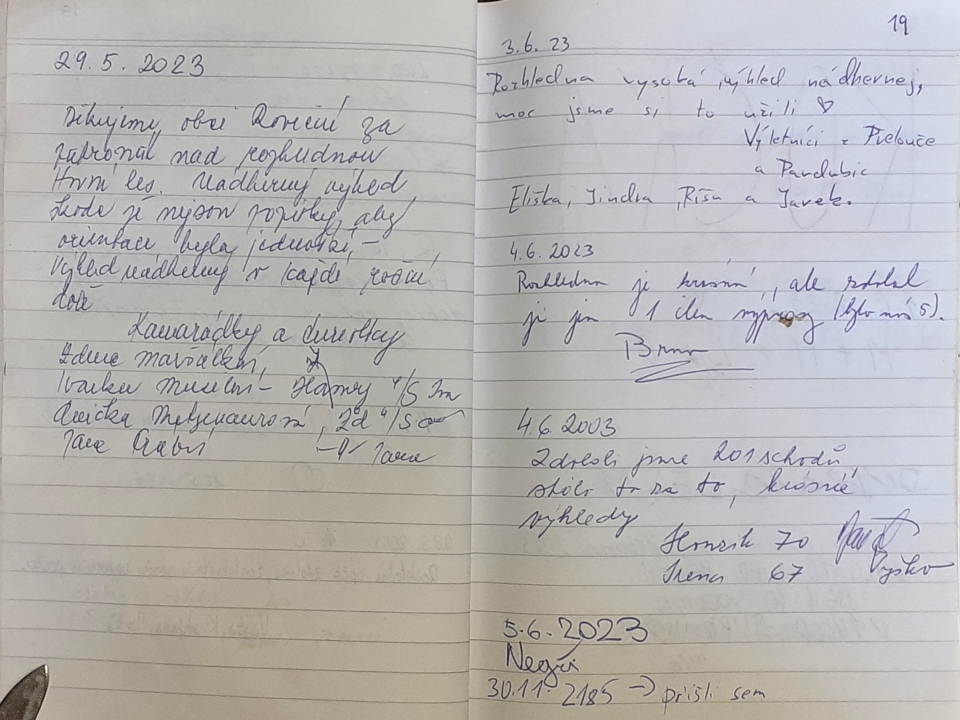 29.5.2023
Děkujeme, obci Rovečné za
nad rozhlednou
Horní les. Nádherný výhled
škoda že nejsou popisky, aby
orientace byla jednodušší, –
Výhled nádherný v každé roční
době
Kamarádky a turistky
Hamry n/S
n/S
Jana
19
3.6.23
Rozhledna vysoká, výhled nádhernej,
moc jsme si to užili ♡
Výletníci z Přelouče
a Pardubic
Eliška, Jindra, Ríša a Jarek.
4.6.2023
Rozhledna je krásná, ale zdolal
ji jen 1 člen výpravy (bylo nás 5).
Brno
4.6 2003
Zdolali jsme 201 schodů
stálo to za to, krásné
výhledy
Honzík 70
Irena 67 Vyškov
5.6.2023
Negři
30.11.2185 → přišli sem